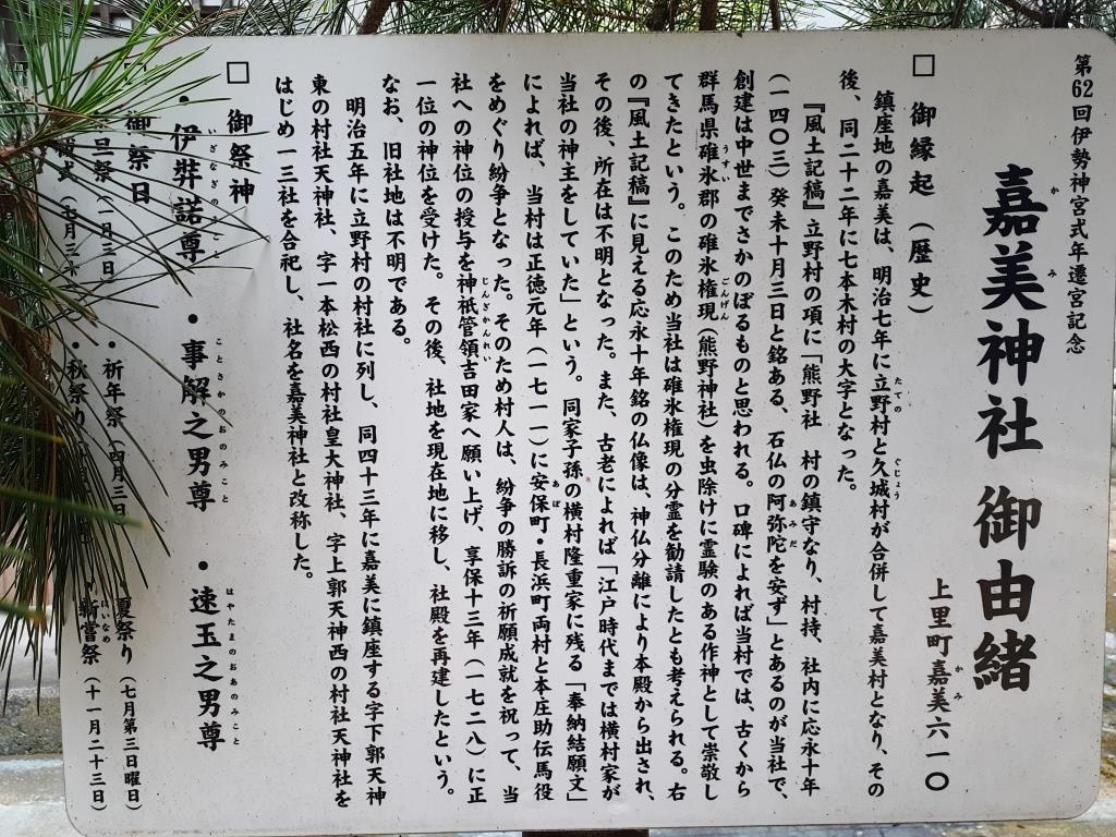 第62回伊勢神宮式年遷宮記念
嘉美神社 御由緒
上里町嘉美六一〇
□ 御縁起（歴史）
鎮座地の嘉美は、明治七年に立野村と久城村が合併して嘉美村となり、その
後、同二十二年に七本木村の大字となった。
『風土記稿』立野村の項に「熊野社 村の鎮守なり、村持、社内に応永十年
（一四〇三）癸未十月三日と銘ある、石仏の阿弥陀を安ず」とあるのが当社で、
創建は中世までさかのぼるものと思われる。口碑によれば当村では、古くから
群馬県碓氷郡の碓氷権現（熊野神社）を虫除けに霊験のある作神として崇敬し
てきたという。このため当社は碓氷権現の分霊を勧請したとも考えられる。右
の『風土記稿』に見える応永十年銘の仏像は、神仏分離により本殿から出され、
その後、所在は不明となった。また、古老によれば「江戸時代までは横村家が
当社の神主をしていた」という。同家子孫の横村隆重家に残る「奉納結願文」
によれば、当村は正徳元年（一七一一）に安保町・長浜町両村と本庄助伝馬役
をめぐり紛争となった。そのため村人は、紛争の勝訴の祈願成就を祝って、当
社への神位の授与を神祇管領吉田家へ願い上げ、享保十三年（一七二八）に正
一位の神位を受けた。その後、社地を現在地に移し、社殿を再建したという。
なお、旧社地は不明である。
明治五年に立野村の村社に列し、同四十三年に嘉美に鎮座する字下郭天神
東の村社天神社、字一本松西の村社皇大神社、字上郭天神西の村社天神社を
はじめ一三社を合祀し、社名を嘉美神社と改称した。
□ 御祭神
・伊弉諾尊 ・事解之男尊 ・速玉之男尊
御祭日
旦祭（一月三日） ・祈年祭（四月三日 ・夏祭り（七月第三日曜日）
式（七月三十 ・秋祭り ・新嘗祭（十一月二十三日）